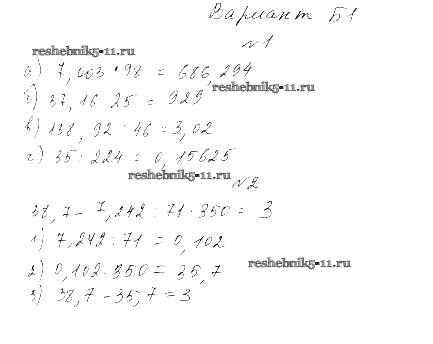 Вариант Б1
№1
reshebnik5-11.ru
а) 7,003 · 98 = 686,294
reshebnik5-11.ru
б) 37,16 25 = 929
в) 138,92 : 46 = 3,02
г) 35 : 224 = 0,15625
reshebnik5-11.ru
№2
38,7 - 7,242 : 71 · 350 = 3
1) 7,242 : 71 = 0,102
2) 0,102 · 350 = 35,7
reshebnik5-11.ru
3) 38,7 - 35,7 = 3